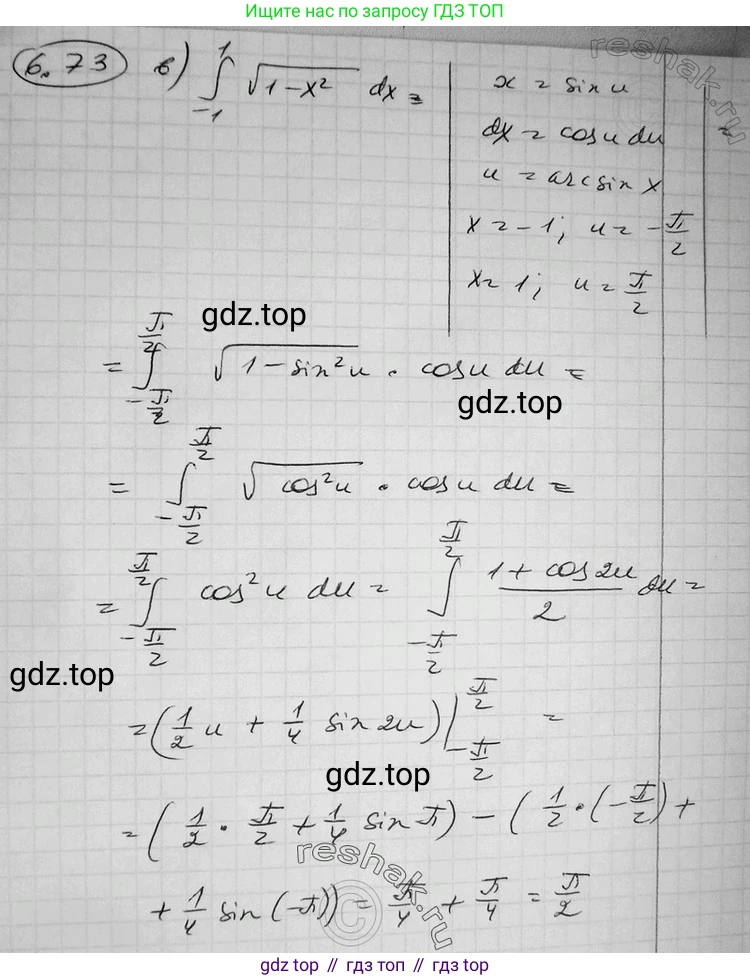 Ищите нас по запросу ГДЗ ТОП
6.73 в) ∫₋₁¹ √(1-x²) dx =
x = sin u
dx = cos u du
u = arcsin x
x = -1; u = -π/2
x = 1; u = π/2
reshak.ru
gdz.top
= ∫_{-π/2}^{π/2} √(1-sin²u) · cos u du =
gdz.top
= ∫_{-π/2}^{π/2} √(cos²u) · cos u du =
= ∫_{-π/2}^{π/2} cos²u du = ∫_{-π/2}^{π/2} (1+cos2u)/2 du =
gdz.top
= (1/2 u + 1/4 sin 2u) |_{-π/2}^{π/2} =
gdz.top
= (1/2 · π/2 + 1/4 sin π) - (1/2 · (-π/2) +
+ 1/4 sin(-π)) = π/4 + π/4 = π/2
reshak.ru
©
gdz.top // гдз.топ // gdz.top